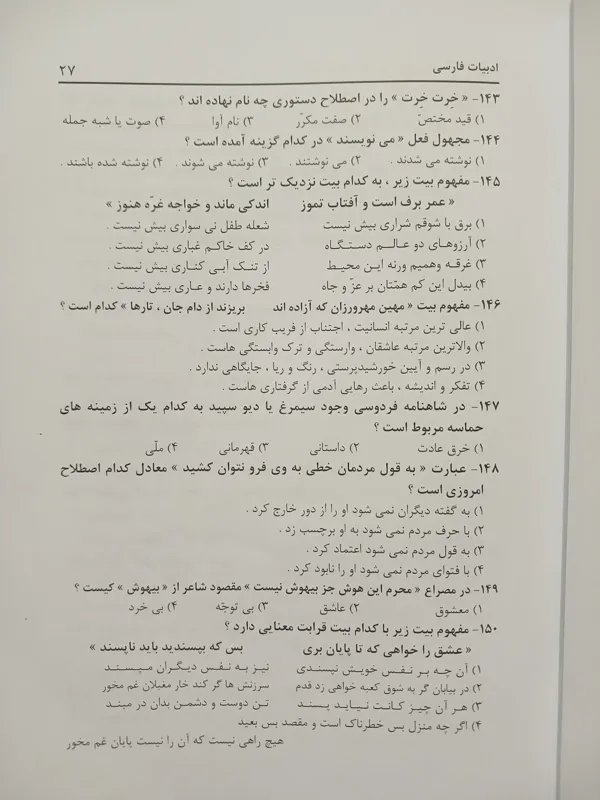 ادبیات فارسی ۲۷
۱۴۳- « خِرت خِرت » را در اصطلاح دستوری چه نام نهاده اند ؟
۱) قید مختصّ ۲) صفت مکرّر ۳) نام آوا ۴) صوت یا شبه جمله
۱۴۴- مجهول فعل « می نویسند » در کدام گزینه آمده است ؟
۱) نوشته می شدند . ۲) می نوشتند . ۳) نوشته می شوند . ۴) نوشته شده باشند .
۱۴۵- مفهوم بیت زیر ، به کدام بیت نزدیک تر است ؟
« عمر برف است و آفتاب تموز اندکی ماند و خواجه غرّه هنوز »
۱) برق با شوقم شراری بیش نیست شعله طفل نی سواری بیش نیست .
۲) آرزوهای دو عالم دستگاه در کف خاکم غباری بیش نیست .
۳) غرقه وهمیم ورنه این محیط از تنک آبی کناری بیش نیست .
۴) بیدل این کم همّتان بر عزّ و جاه فخرها دارند و عاری بیش نیست .
۱۴۶- مفهوم بیت « مهین مهرورزان که آزاده اند بریزند از دام جان ، تارها » کدام است ؟
۱) عالی ترین مرتبه انسانیت ، اجتناب از فریب کاری است .
۲) والاترین مرتبه عاشقان ، وارستگی و ترک وابستگی هاست .
۳) در رسم و آیین خورشیدپرستی ، رنگ و ریا ، جایگاهی ندارد .
۴) تفکر و اندیشه ، باعث رهایی آدمی از گرفتاری هاست .
۱۴۷- در شاهنامه فردوسی وجود سیمرغ یا دیو سپید به کدام یک از زمینه های
حماسه مربوط است ؟
۱) خرق عادت ۲) داستانی ۳) قهرمانی ۴) ملّی
۱۴۸- عبارت « به قول مردمان خطی به وی فرو نتوان کشید » معادل کدام اصطلاح
امروزی است ؟
۱) به گفته دیگران نمی شود او را از دور خارج کرد .
۲) با حرف مردم نمی شود به او برچسب زد .
۳) به قول مردم نمی شود اعتماد کرد .
۴) با فتوای مردم نمی شود او را نابود کرد .
۱۴۹- در مصراع « محرم این هوش جز بیهوش نیست » مقصود شاعر از « بیهوش » کیست ؟
۱) معشوق ۲) عاشق ۳) بی توجّه ۴) بی خرد
۱۵۰- مفهوم بیت زیر با کدام بیت قرابت معنایی دارد ؟
« عشق را خواهی که تا پایان بری بس که بپسندید باید ناپسند »
۱) آن چه بر نفس خویش نپسندی نیز به نفس دیگران مپسند
۲) در بیابان گر به شوق کعبه خواهی زد قدم سرزنش ها گر کند خار مغیلان غم مخور
۳) هر آن چیز کانت نیاید پسند تن دوست و دشمن بدان در مبند
۴) اگر چه منزل بس خطرناک است و مقصد بس بعید
هیچ راهی نیست که آن را نیست پایان غم مخور